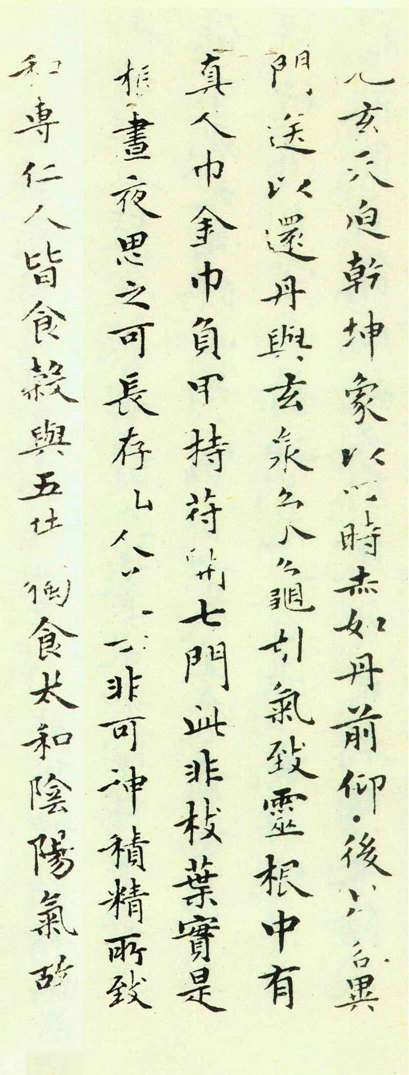 玄天迫乾坤象以時赤如丹前仰後各異
門送以還丹與玄泉龜引氣致靈根中有
真人巾金巾負甲持苻開七門此非枝葉實是
根晝夜思之可長存人非可神積精所致
和專仁人皆食穀與五獨食太和陰陽氣故